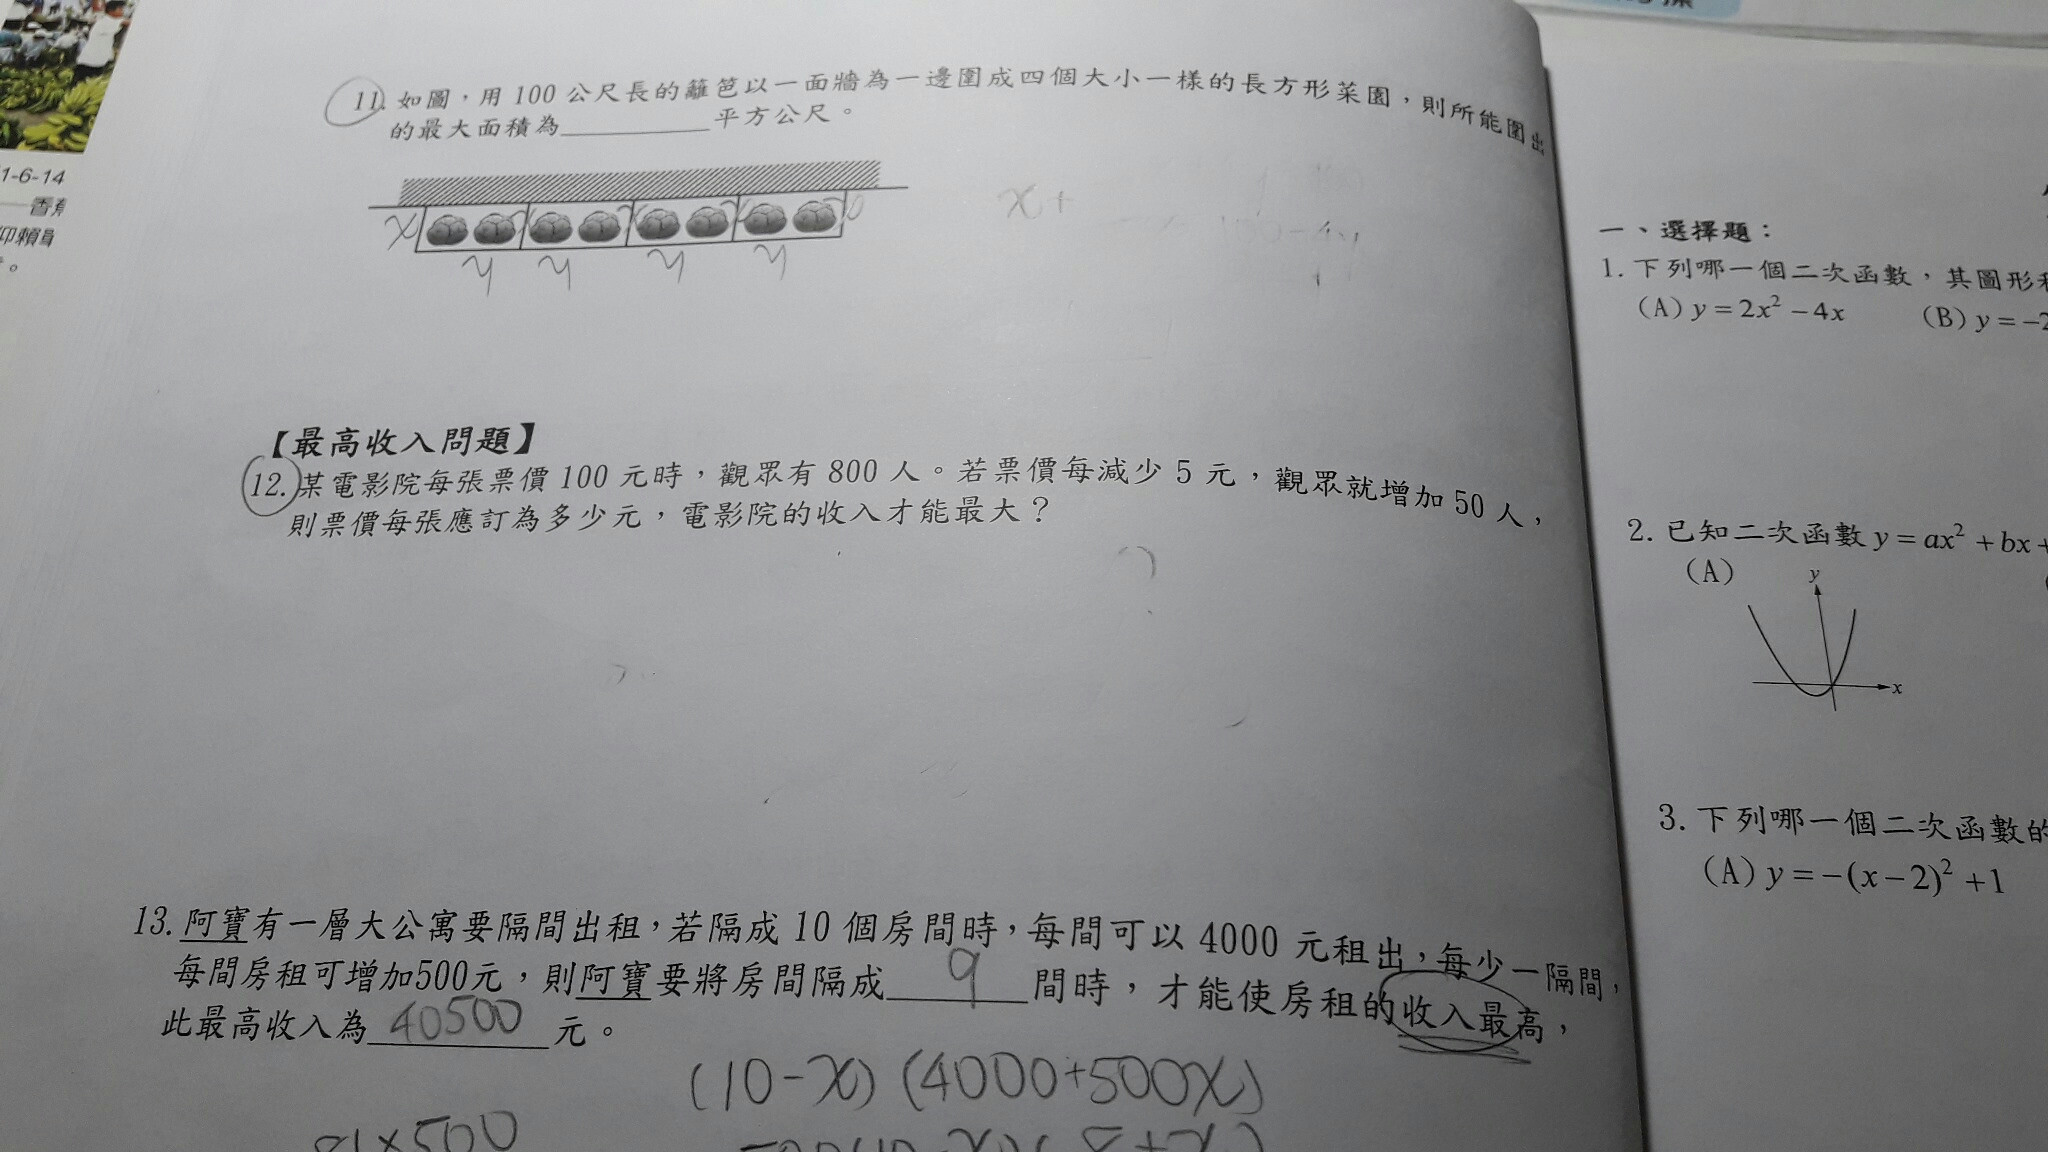 1-6-14
11. 如圖，用 100 公尺長的籬笆以一面牆為一邊圍成四個大小一樣的長方形菜園，則所能圍出
的最大面積為 平方公尺。
x
y y y y
x+
【最高收入問題】
12. 某電影院每張票價 100 元時，觀眾有 800 人。若票價每減少 5 元，觀眾就增加 50 人，
則票價每張應訂為多少元，電影院的收入才能最大？
13. 阿寶有一層大公寓要隔間出租，若隔成 10 個房間時，每間可以 4000 元租出，每少一隔間，
每間房租可增加500元，則阿寶要將房間隔成 9 間時，才能使房租的收入最高，
此最高收入為 40500 元。
(10-x)(4000+500x)
81×500
一、選擇題：
1. 下列哪一個二次函數，其圖形
(A) y = 2x² − 4x (B) y =
2. 已知二次函數 y = ax² + bx +
(A)
y
x
3. 下列哪一個二次函數的
(A) y = −(x − 2)² + 1